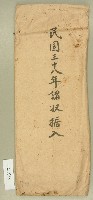 民國三十八年謝收據入